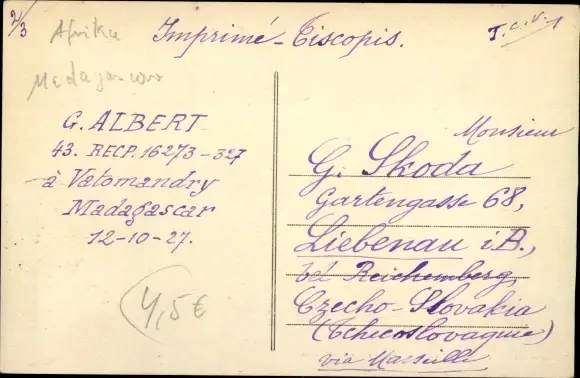 2/3
Afrika
Madagascar
Imprimé - Tiscopis.
T.C.V.
G. ALBERT
43. RECP. 16273-327
à Vatomandry
Madagascar
12-10-27.
4,5€
Monsieur
G. Skoda
Gartengasse 68,
Liebenau i.B.,
bei Reichemberg,
Czecho-Slovakia
(Tchecoslovaquie)
via Marseille